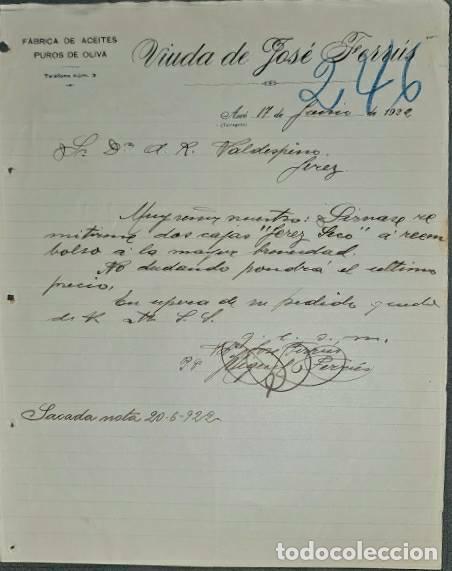 FÁBRICA DE ACEITES
PUROS DE OLIVA
Teléfono núm. 3
Viuda de José Ferrús
246
Ascó 17 de Junio de 1922
(Tarragona)
Sr. Dn A. R. Valdespino
Jerez
Muy señor nuestro: Sirvase re
mitirme dos cajas "Jerez Seco" á reem
bolso á la mayor brevedad.
No dudando pondrá el ultimo
precio,
En espera de su pedido queda
de V. S. S.
q. e. s. m.
José Ferrús
P P Ferrús
Sacada nota 20-6-922
todocoleccion.net